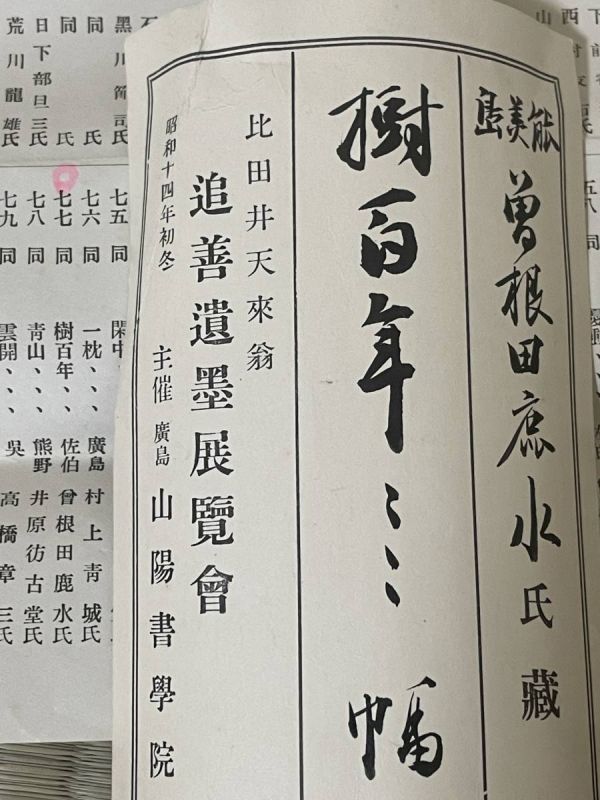 能美島 曽根田鹿水氏藏
樹百年、、、幅
比田井天來翁
追善遺墨展覽會
昭和十四年初冬 主催 廣島 山陽書學院
西村友石氏
山
五八 同
黑川範司氏
同 氏
同 氏
日下部旦三氏
荒川龍雄氏
七五 同 閑中
七六 同 一枕、、、 廣島 村上青城氏
七七 同 樹百年、、、 佐伯 曾根田鹿水氏
七八 同 青山、、、 熊野 井原彷古堂氏
七九 同 雲開、、、 吳 高橋章三氏